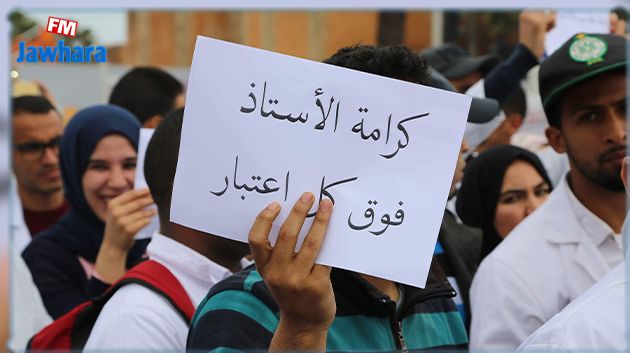 FM
Jawhara
كرامة الأستاذ
فوق كل اعتبار